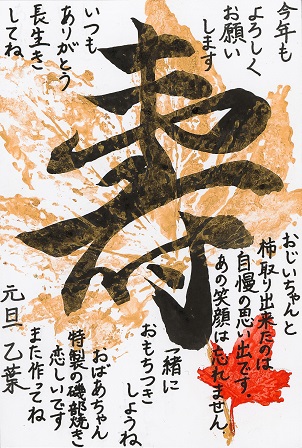 今年も
よろしく
お願い
します
いつも
ありがとう
長生き
してね
寿
おじいちゃんと
柿取り出来たのは
自慢の思い出です。
あの笑顔は忘れません
一緒に
おもちつき
しようね
おばあちゃん
特製の磯部焼き
恋しいです
また作ってね
元旦 乙葉